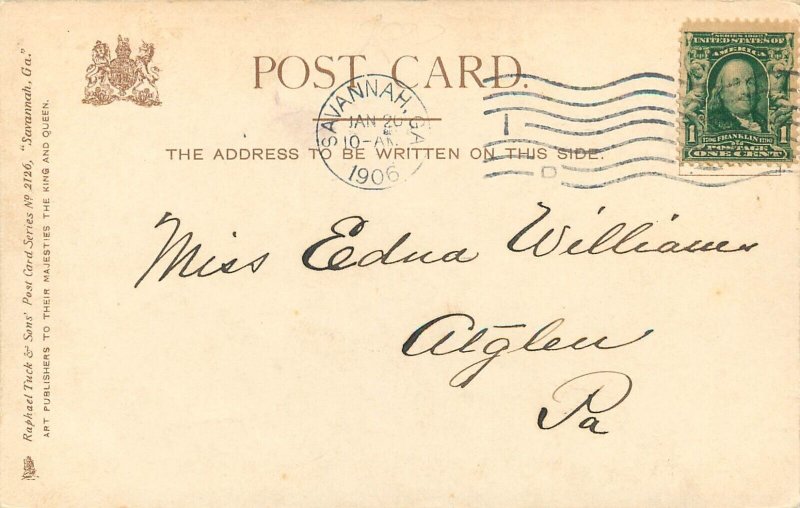 POST CARD.
SAVANNAH, GA
JAN 20
10-AM
1906
1
D
SERIES 1902
UNITED STATES OF
AMERICA
1 1
1706 FRANKLIN 1790
POSTAGE
ONE CENT
THE ADDRESS TO BE WRITTEN ON THIS SIDE.
Miss Edna Williams
Atglen
Pa
Raphael Tuck & Sons' Post Card Series No 2126, "Savannah, Ga."
ART PUBLISHERS TO THEIR MAJESTIES THE KING AND QUEEN.